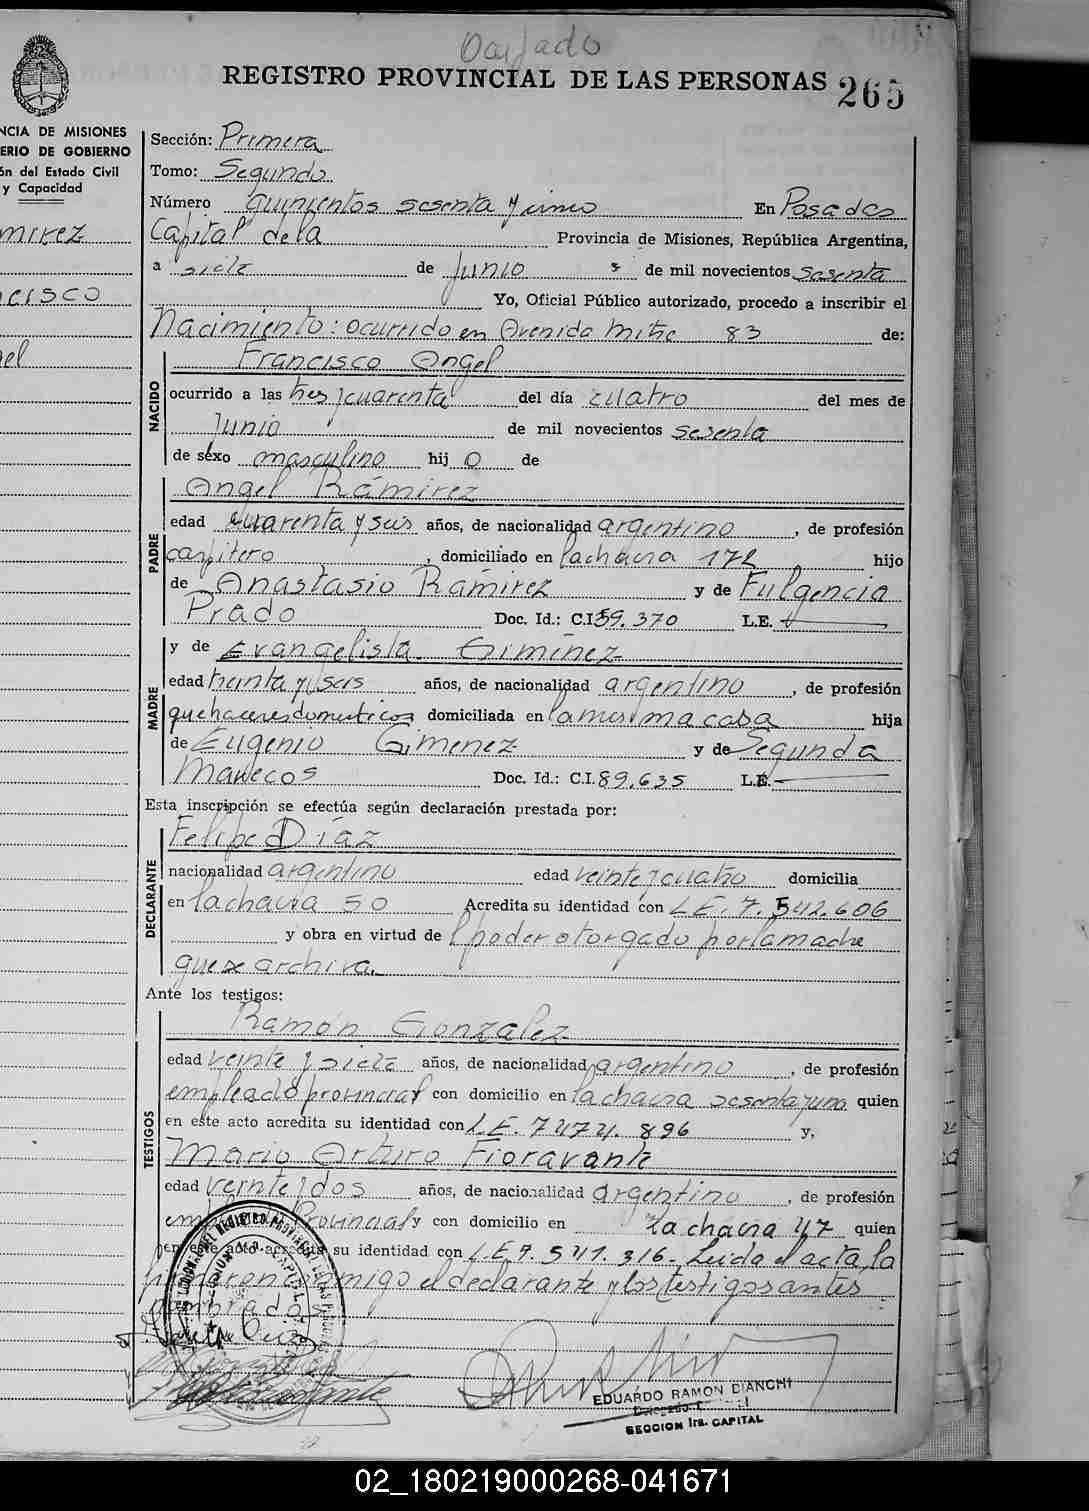 REGISTRO PROVINCIAL DE LAS PERSONAS 265
NCIA DE MISIONES
ERIO DE GOBIERNO
ón del Estado Civil
y Capacidad
MIREZ
CISCO
el
Sección: Primera
Tomo: Segundo
Número quinientos sesenta y cinco En Posadas
Capital de la Provincia de Misiones, República Argentina,
a siete de Junio de mil novecientos sesenta
Yo, Oficial Público autorizado, procedo a inscribir el
Nacimiento: ocurrido en Avenida Mitre 83 de:
NACIDO
Francisco Angel
ocurrido a las tres y cuarenta del día cuatro del mes de
Junio de mil novecientos sesenta
de séxo masculino hij o de
PADRE
Angel Rámirez
edad cuarenta y seis años, de nacionalidad argentino, de profesión
carpitero, domiciliado en la chacra 172 hijo
de Anastasio Ramirez y de Fulgencia
Prado Doc. Id.: C.I. 59.370 L.E.
MADRE
y de Evangelista Giminez
edad treinta y seis años, de nacionalidad argentino, de profesión
quehaceres domesticos domiciliada en la misma casa hija
de Eugenio Gimenez y de Segunda
Doc. Id.: C.I. 89.635 L.E.
Esta inscripción se efectúa según declaración prestada por:
DECLARANTE
Felipe Díaz
nacionalidad argentino edad veinte y cuatro domicilia
en la chacra 50 Acredita su identidad con L.E. 7.542.606
y obra en virtud de l poder otorgado por la madre
que se archiva.
Ante los testigos:
TESTIGOS
Ramón Gonzalez
edad veinte y siete años, de nacionalidad argentino, de profesión
empleado provincial con domicilio en la chacra sesenta y uno quien
en este acto acredita su identidad con L.E. 7474.896 y,
Mario Arturo Fioravante
edad veinte y dos años, de nacionalidad argentino, de profesión
Provincial y con domicilio en la chacra 47 quien
en este acto acredita su identidad con L.E 7.541.316- Leida el acta, la
firmaron conmigo el declarante y los testigos antes
nombrados
EDUARDO RAMON BIANCHI
SECCION 1ra. CAPITAL
02_180219000268-041671